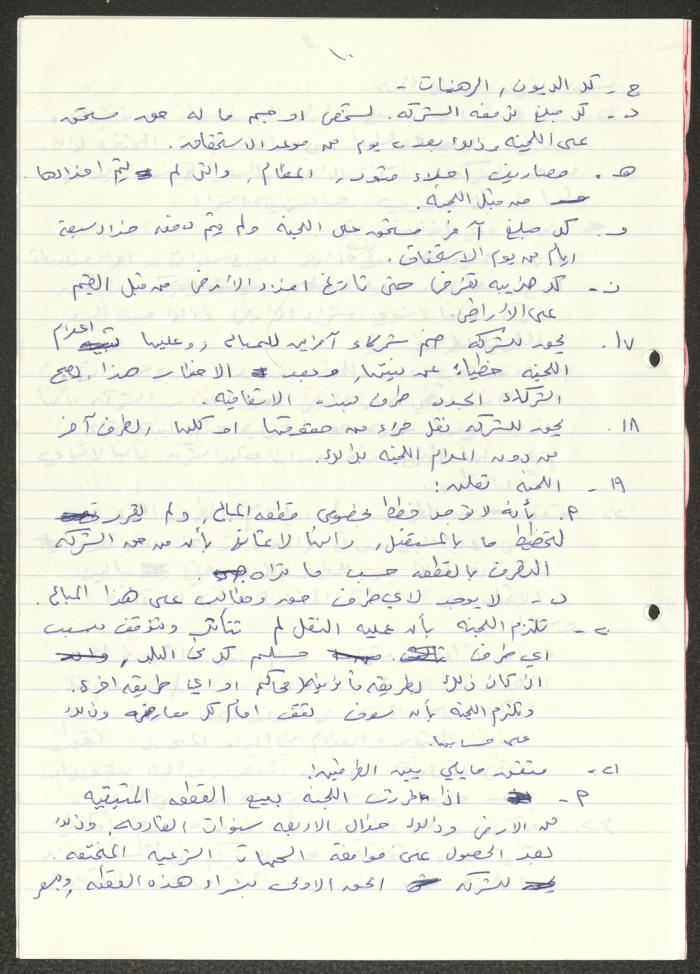 ١٠
ج - كل الديون والرهنات -
د - كل مبلغ تدفعه الشركة لشخص او جسم ما له حق مستحق
على اللجنه وذلك بعد ٧ يوم من موعد الاستحقاق.
هـ - مصاريف اخلاء قبور والعظام، والتي لم يتم اخذاها
من قبل اللجنة.
و - كل مبلغ آخر مستحق على اللجنة ولم يتم دفعه خلال سبعة
ايام من يوم الاستحقاق.
ز - كل ضريبه تفرض حتى تاريخ اعداد الأرض من قبل القيم
على الأراضي.
١٧. يجوز للشركة ضم شركاء آخرين للمبالم، وعليها اعلام
اللجنه خطياً عن نيتها، وبعد الاخطار هذا، يصبح
الشركاء الجدد طرف بهذه الاتفاقية.
١٨. يجوز للشركه نقل جزاء من حقوقها او كلها لطرف آخر
من دون اعلام اللجنه بذلك.
١٩ - اللجنه تعلن:
أ. بأنه لا توجد خطط بخصوص قطعه المبالم، ولم يتقرر
تخطيط ما بالمستقبل، وأنها لا تمانع بأن من حق الشركه
التصرف بالقطعه حسب ما تراه.
ب - لا يوجد لاي طرف حق ومطالب على هذا المبالم.
٢٠ - تلتزم اللجنه بأن عملية النقل لم تتأثر وتتوقف بسبب
اي طرف مسلم كل من البلد،
ان كان ذلك بطريقه قانونية محاكم او اي طريقه اخرى.
وتلتزم اللجنه بأن سوف تقف امام كل معارضه وذلك
على حسابها.
٢١ - متفق مايلي بين الطرفين:
أ - اذا قررت اللجنه ببيع القطعه المتبقيه
من الارض وذلك خلال الاربعه سنوات القادمه، وذلك
بعد الحصول على موافقة الجهات الشرعيه المختصه.
للشركه الحق الاولى بشراء هذه القطعه، وبسعر